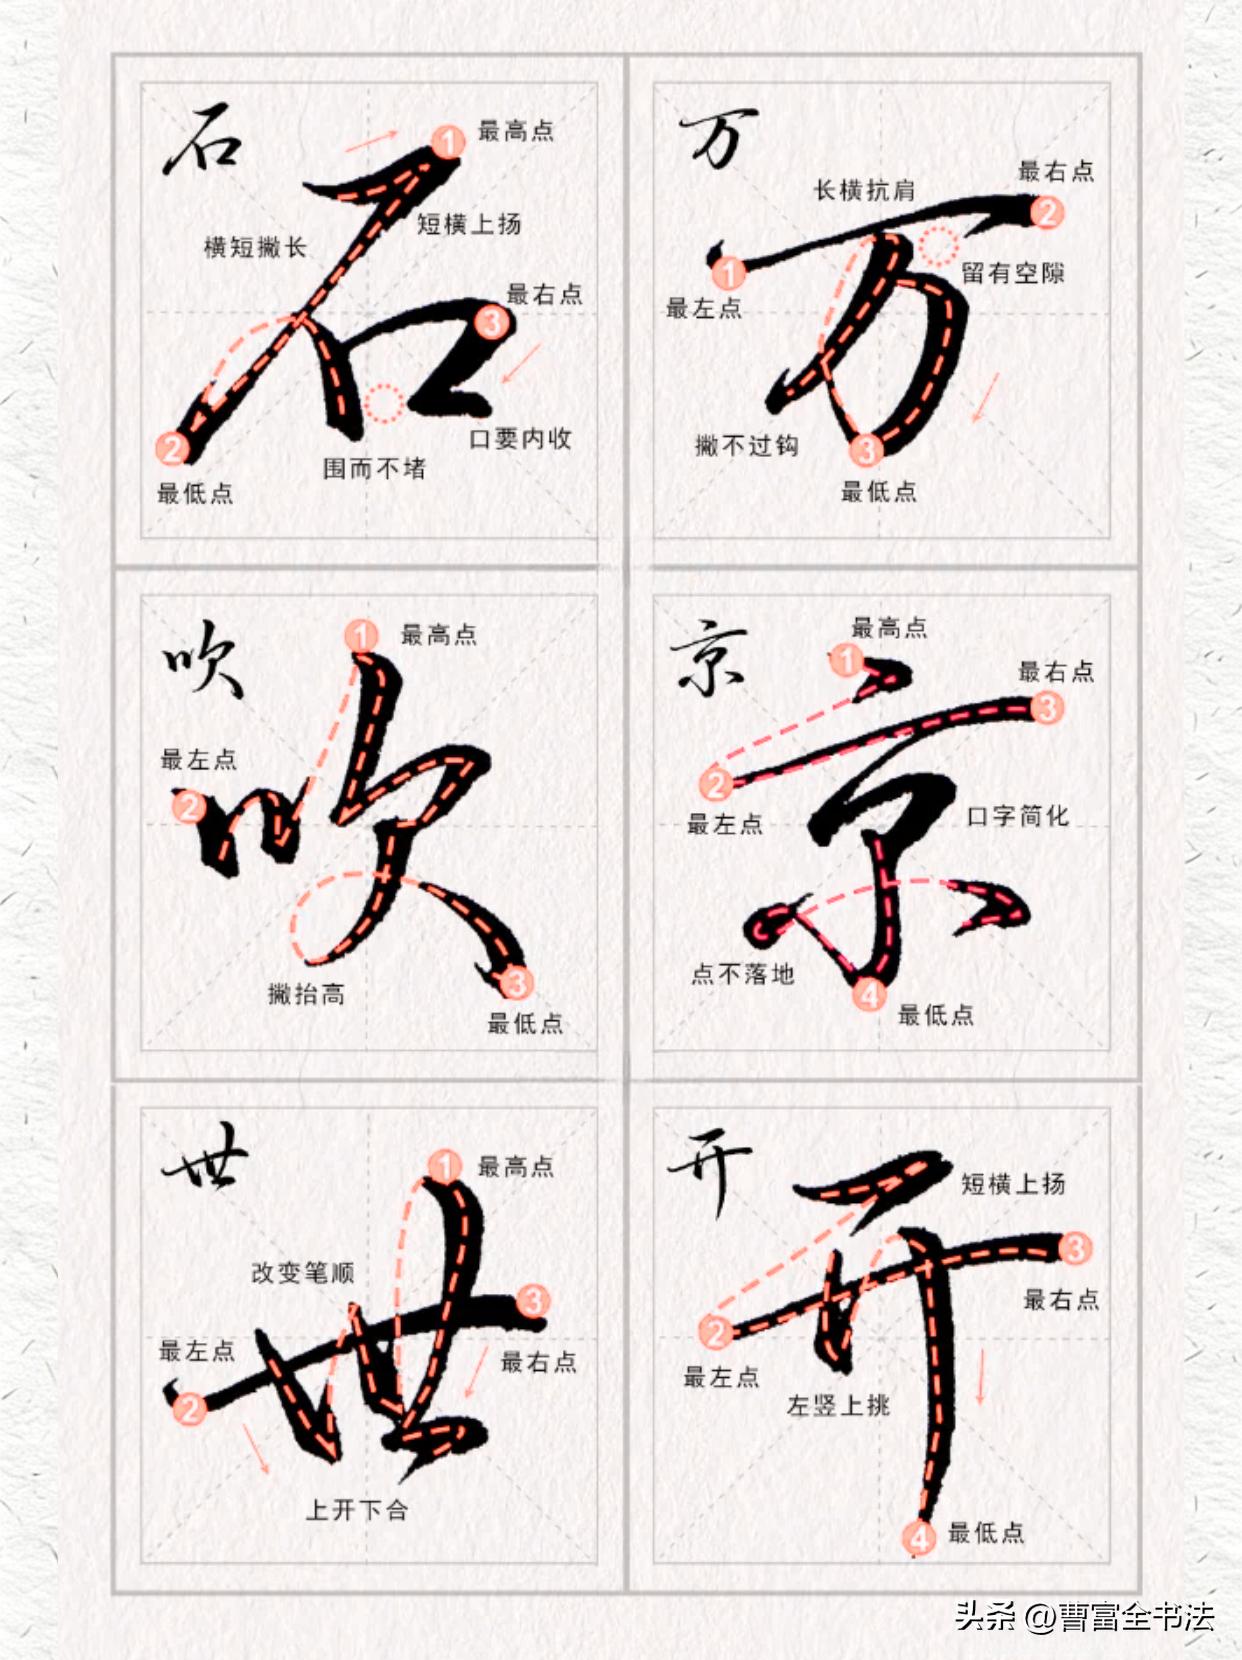 石
① 最高点
短横上扬
横短撇长
最右点
③
② 最低点
围而不堵
口要内收
万
长横抗肩
最右点
②
留有空隙
①
最左点
撇不过钩
③
最低点
吹
① 最高点
最左点
②
撇抬高
③
最低点
京
最高点
①
最右点
③
②
最左点
口字简化
点不落地
④
最低点
世
① 最高点
改变笔顺
③
最左点
最右点
②
上开下合
开
短横上扬
③
最右点
②
最左点
左竖上挑
④ 最低点
头条 @曹富全书法